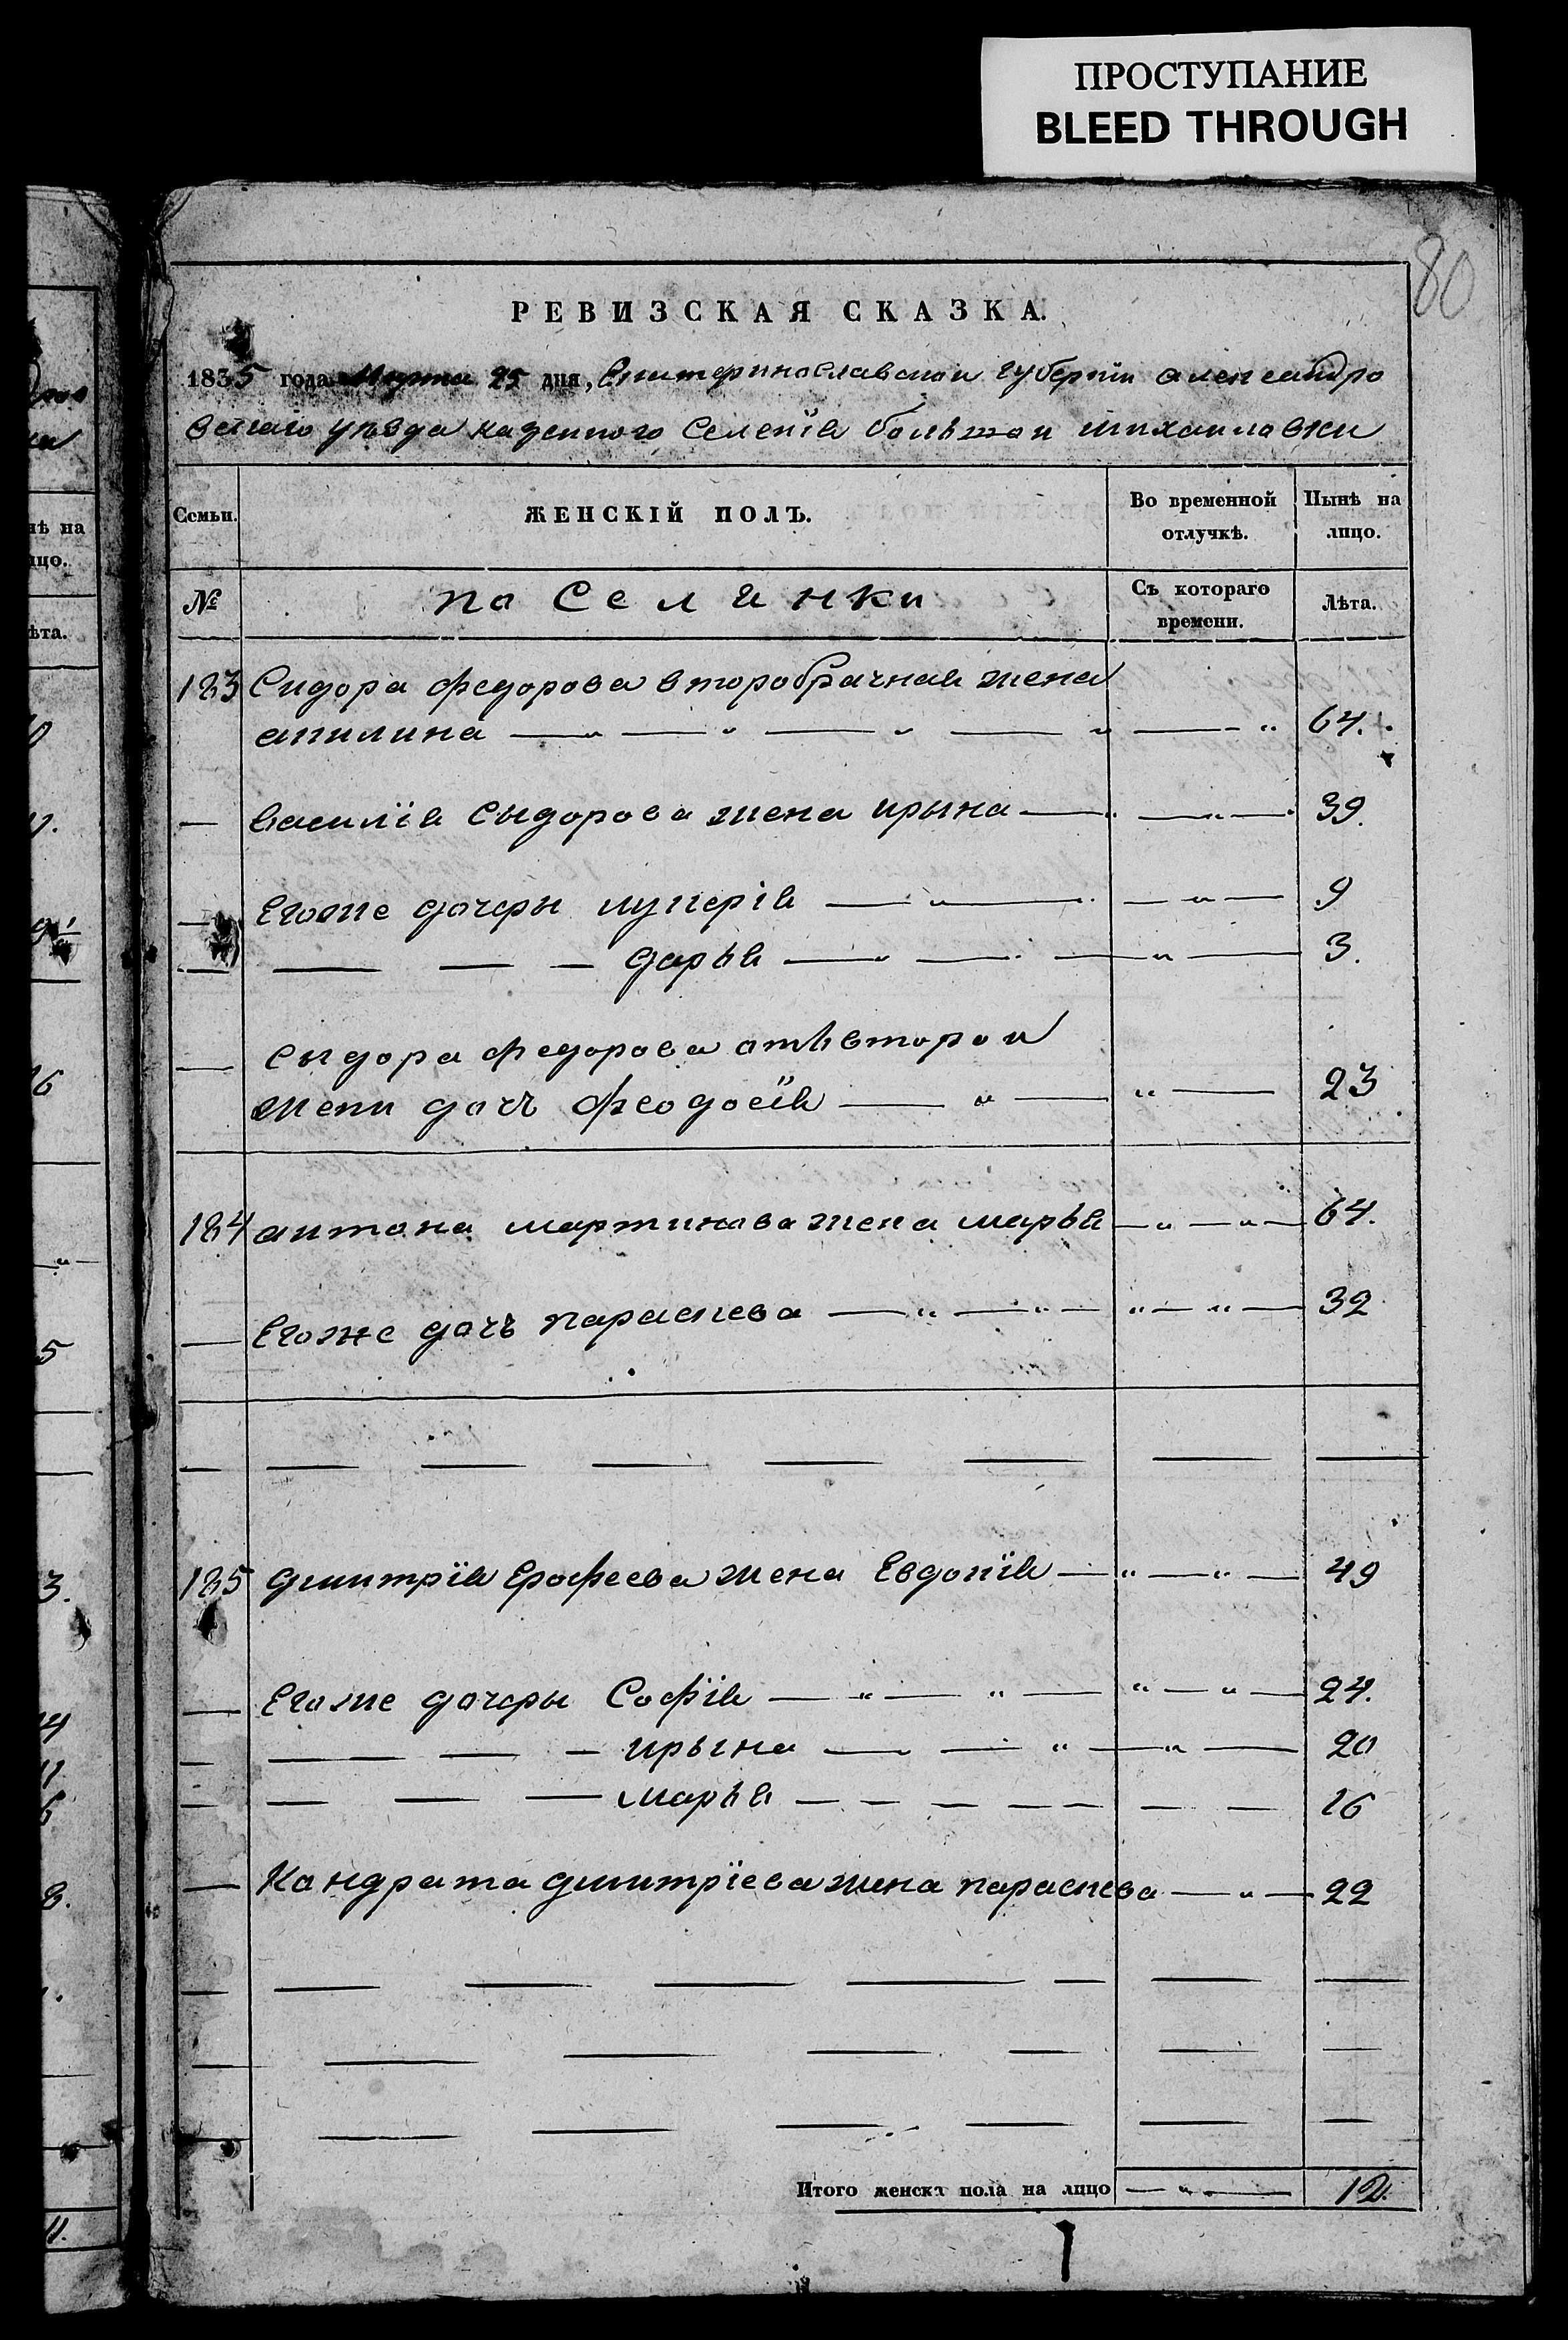 ПРОСТУПАНИЕ
BLEED THROUGH
80
РЕВИЗСКАЯ СКАЗКА.
1835 года Марта 25 дня, Екатеринославской губернїи александро
вскаго уѣзда казенного Селенїя большой михайловки
Семьи. ЖЕНСКІЙ ПОЛЪ. Во временной отлучкѣ. Нынѣ на лицо.
№ поселянки Съ котораго времени. Лѣта.
183 Сидора федорова второбрачная жена
акилина — „ — „ — „ — „ — „ 64.
— василїя сыдорова жена ирына — „ — „ — 39.
— Егоже дочеры лукерія — „ — — „ — 9
— — — — дарья — „ — — „ — 3.
— сыдора федорова отъ второй
жени дочъ феодосїя — „ — „ — 23
184 антона мартинова жена марья — „ — „ — 64.
— Егоже дочъ параскева — „ — „ — „ — „ — 32
— — — — — — — —
185 дмитрїя Ерофеева жена Евдокїя — „ — „ — 49
— Егоже дочеры Софїя — „ — „ — „ — „ — 24.
— — — — ирына — — „ — „ — 20
— — — — марья — — — — — — — 16
— Кондрата дмитрїева жена параскева — „ — 22
— — — — — — — —
— — — — — — —
— — — — — — —
Итого женскъ пола на лицо — „ — 12.